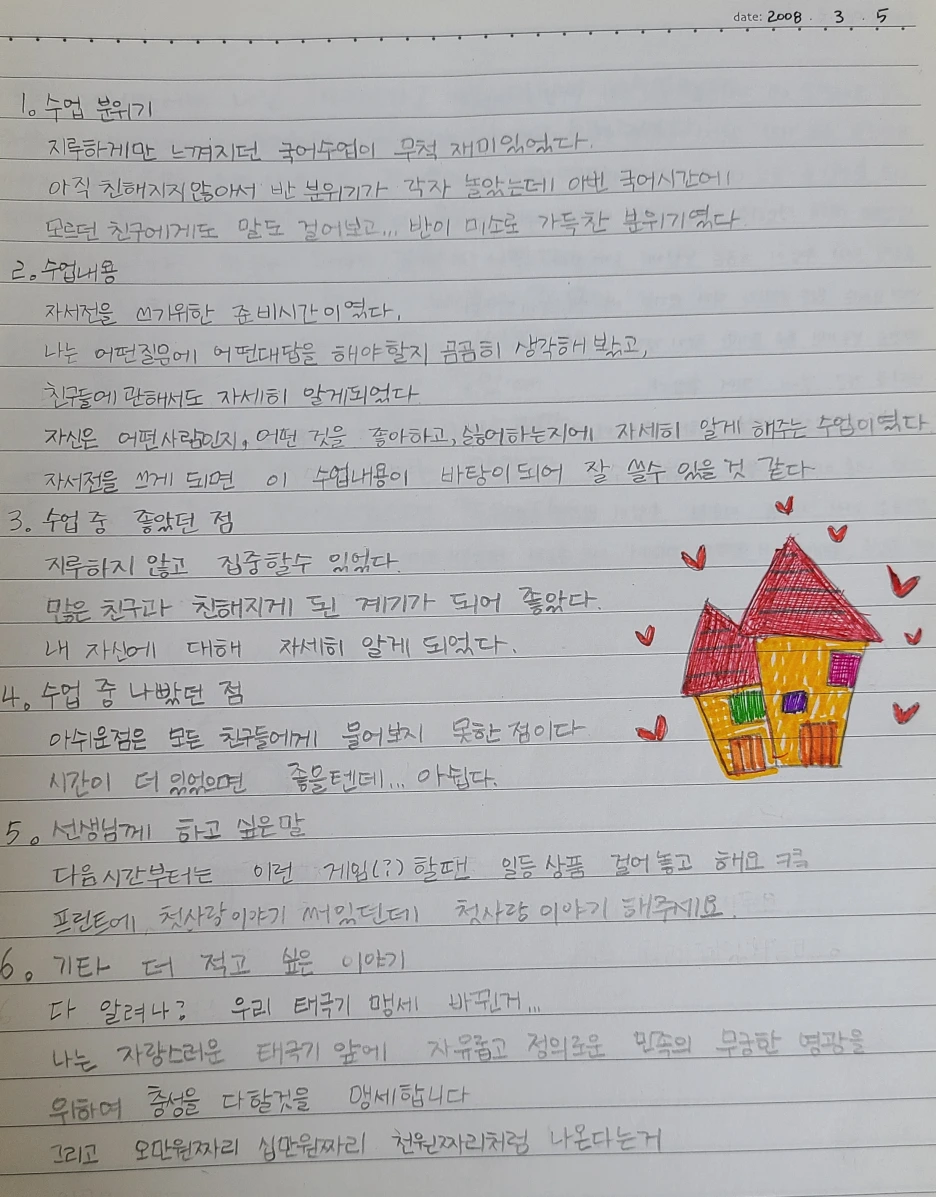 date: 2008 . 3 . 5
1. 수업 분위기
지루하게만 느껴지던 국어수업이 무척 재미있었다.
아직 친해지지않아서 반 분위기가 각자 놀았는데 이번 국어시간에
모르던 친구에게도 말도 걸어보고... 반이 미소로 가득찬 분위기였다
2. 수업내용
자서전을 쓰기위한 준비시간이였다.
나는 어떤질문에 어떤대답을 해야할지 곰곰히 생각해 봤고,
친구들에 관해서도 자세히 알게되었다
자신은 어떤사람인지, 어떤 것을 좋아하고, 싫어하는지에 자세히 알게 해주는 수업이였다
자서전을 쓰게 되면 이 수업내용이 바탕이되어 잘 쓸수 있을것 같다
3. 수업 중 좋았던 점
지루하지 않고 집중할수 있었다.
많은 친구과 친해지게 된 계기가 되어 좋았다.
내 자신에 대해 자세히 알게 되었다.
4. 수업 중 나빴던 점
아쉬운점은 모든 친구들에게 물어보지 못한 점이다
시간이 더 있었으면 좋을텐데... 아쉽다.
5. 선생님께 하고 싶은말
다음시간부터는 이런 게임(?) 할땐 일등상품 걸어놓고 해요 ㅋㅋ
프린트에 첫사랑이야기 써있던데 첫사랑 이야기 해주세요
6. 기타 더 적고 싶은 이야기
다 알려나? 우리 태극기 맹세 바뀐거...
나는 자랑스러운 태극기 앞에 자유롭고 정의로운 민족의 무궁한 영광을
위하여 충성을 다할것을 맹세합니다
그리고 오만원짜리 십만원짜리 천원짜리처럼 나온다는거